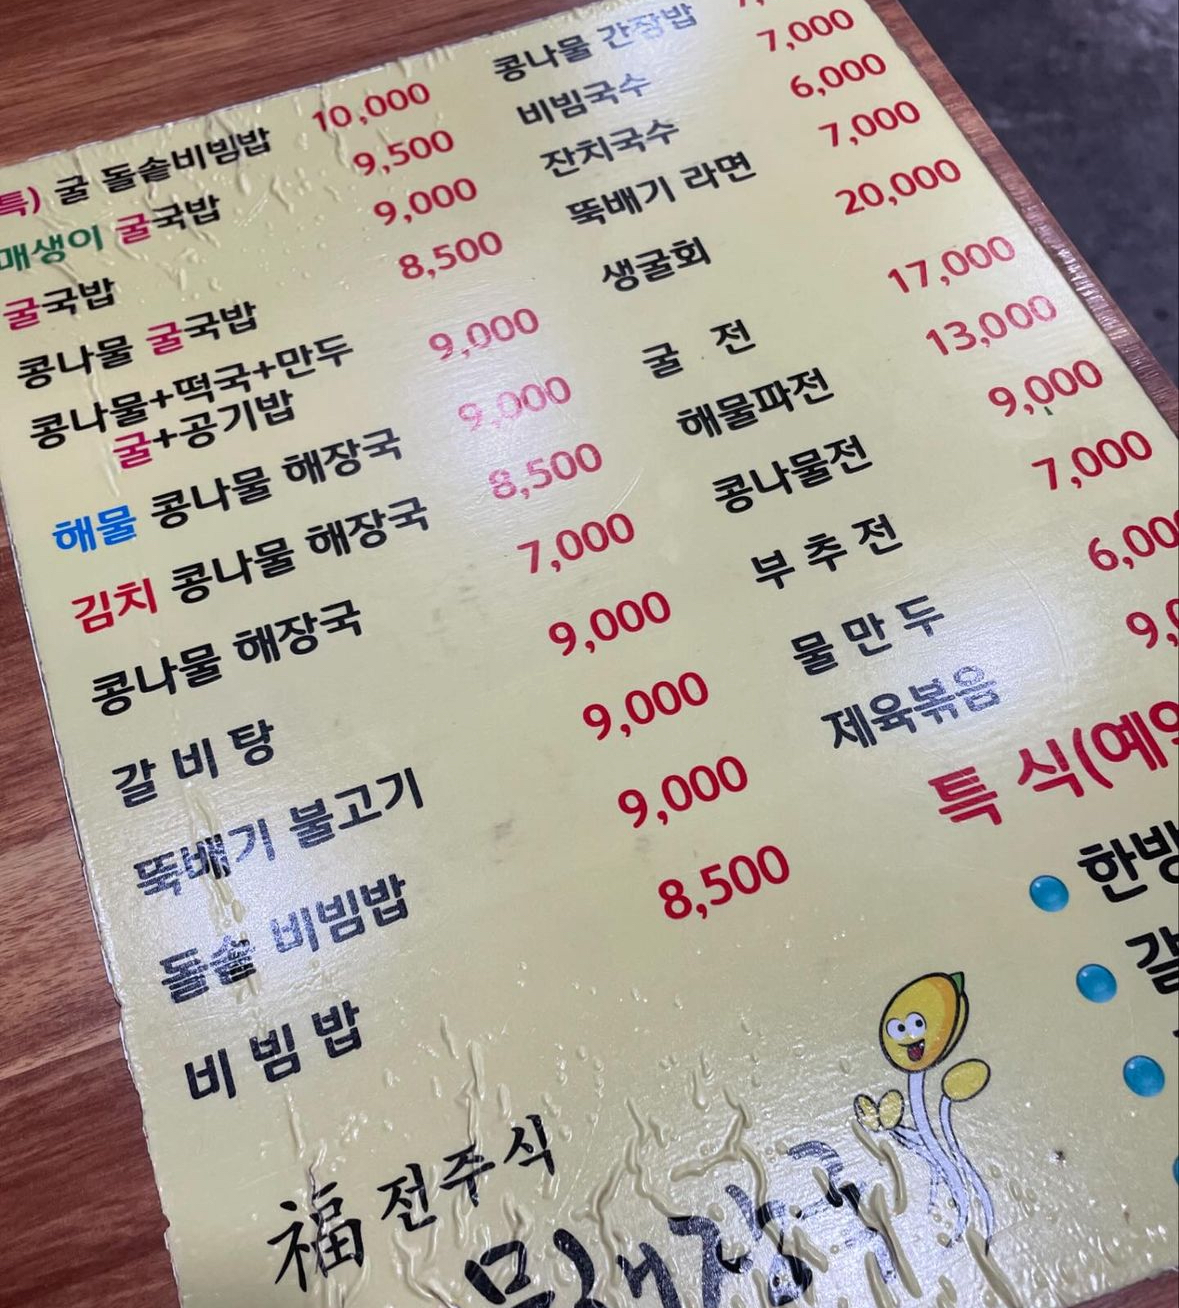 특) 굴 돌솥비빔밥 10,000
매생이 굴국밥 9,500
굴국밥 9,000
콩나물 굴국밥 8,500
콩나물+떡국+만두
굴+공기밥 9,000
해물 콩나물 해장국 9,000
김치 콩나물 해장국 8,500
콩나물 해장국 7,000
갈 비 탕 9,000
뚝배기 불고기 9,000
돌솥 비빔밥 9,000
비 빔 밥 8,500
콩나물 간장밥
비빔국수 7,000
잔치국수 6,000
뚝배기 라면 7,000
생굴회 20,000
굴 전 17,000
해물파전 13,000
콩나물전 9,000
부 추 전 7,000
물 만 두
제육볶음
특 식(예
한방
갈
福 전주식